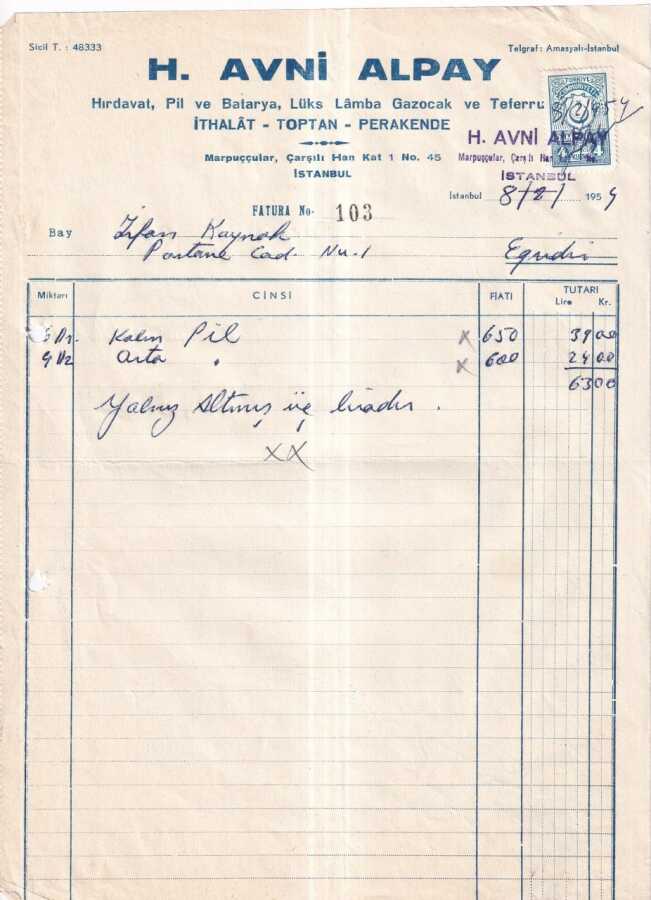 Sicil T. : 48333
Telgraf: Amasyalı-İstanbul
H. AVNİ ALPAY
Hırdavat, Pil ve Batarya, Lüks Lâmba Gazocak ve Teferru
İTHALÂT - TOPTAN - PERAKENDE
Marpuççular, Çarşılı Han Kat 1 No. 45
İSTANBUL
TÜRKİYE
CUMHURİYETİ
4 4
8/2/954
H. AVNİ ALPAY
Marpuççular, Çarşılı Han No.
İSTANBUL
İstanbul 8/2/1954
FATURA No. 103
Bay İrfan Kaynak
Postane Cad. Nu. 1 Egridir
Miktarı CİNSİ FİATI TUTARI
Lire Kr.
6 Dz. Kalın Pil x 650 39 00
4 Dz Orta " x 600 24 00
63 00
Yalnız Altmış üç liradır.
XX